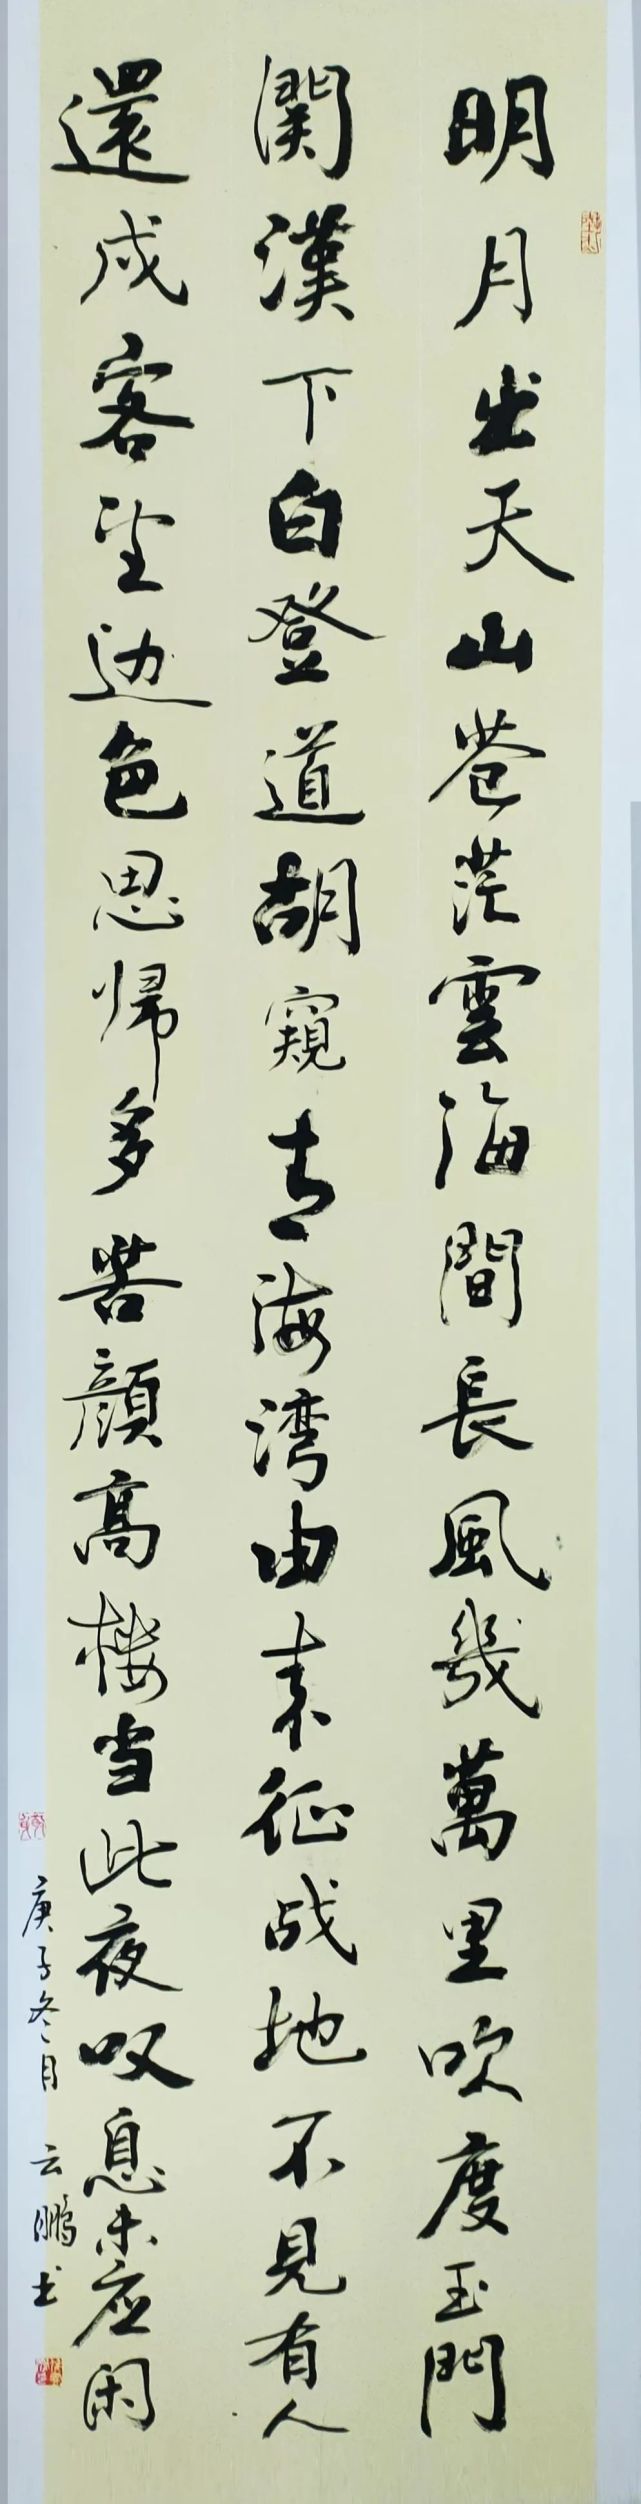 明月出天山苍茫雲海間長風幾萬里吹度玉門
関漢下白登道胡窺青海湾由来征战地不見有人
還戍客望边色思帰多苦顔高楼当此夜叹息未应闲
庚子冬月 云鵬书